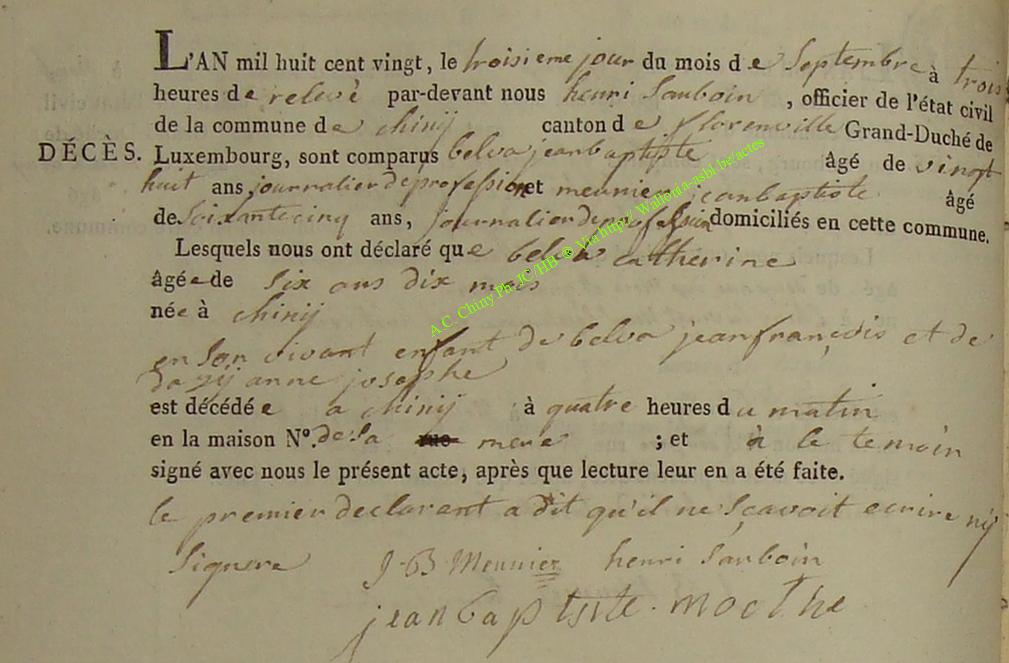 L'AN mil huit cent vingt, le troisieme jour du mois de Septembre à trois
heures de relevè par-devant nous henri Sauboin, officier de l'état civil
de la commune de chinij canton de florenville Grand-Duché de
DÉCÈS. Luxembourg, sont comparus belva jeanbaptiste âgé de vingt
huit ans journalier de profession et meunier jeanbaptiste âgé
de Soixantecinq ans, journalier de profession domiciliés en cette commune.
Lesquels nous ont déclaré que belva catherine
âgée de Six ans dix mois
née à chinij
en Son vivant enfant de belva jeanfrançois et de
anne josephe
est décédée a chinij à quatre heures du matin
en la maison N°. de Sa rue mere ; et à le temoin
signé avec nous le présent acte, après que lecture leur en a été faite.
le premier declarant a dit qu'il ne Sçavoit ecrire nij
Signera J-B Meunier henri Sauboin
jean baptiste. mocthe
A.C. Chiny Ph. JC/HB ® Via http// Wallonia-asbl.be/actes